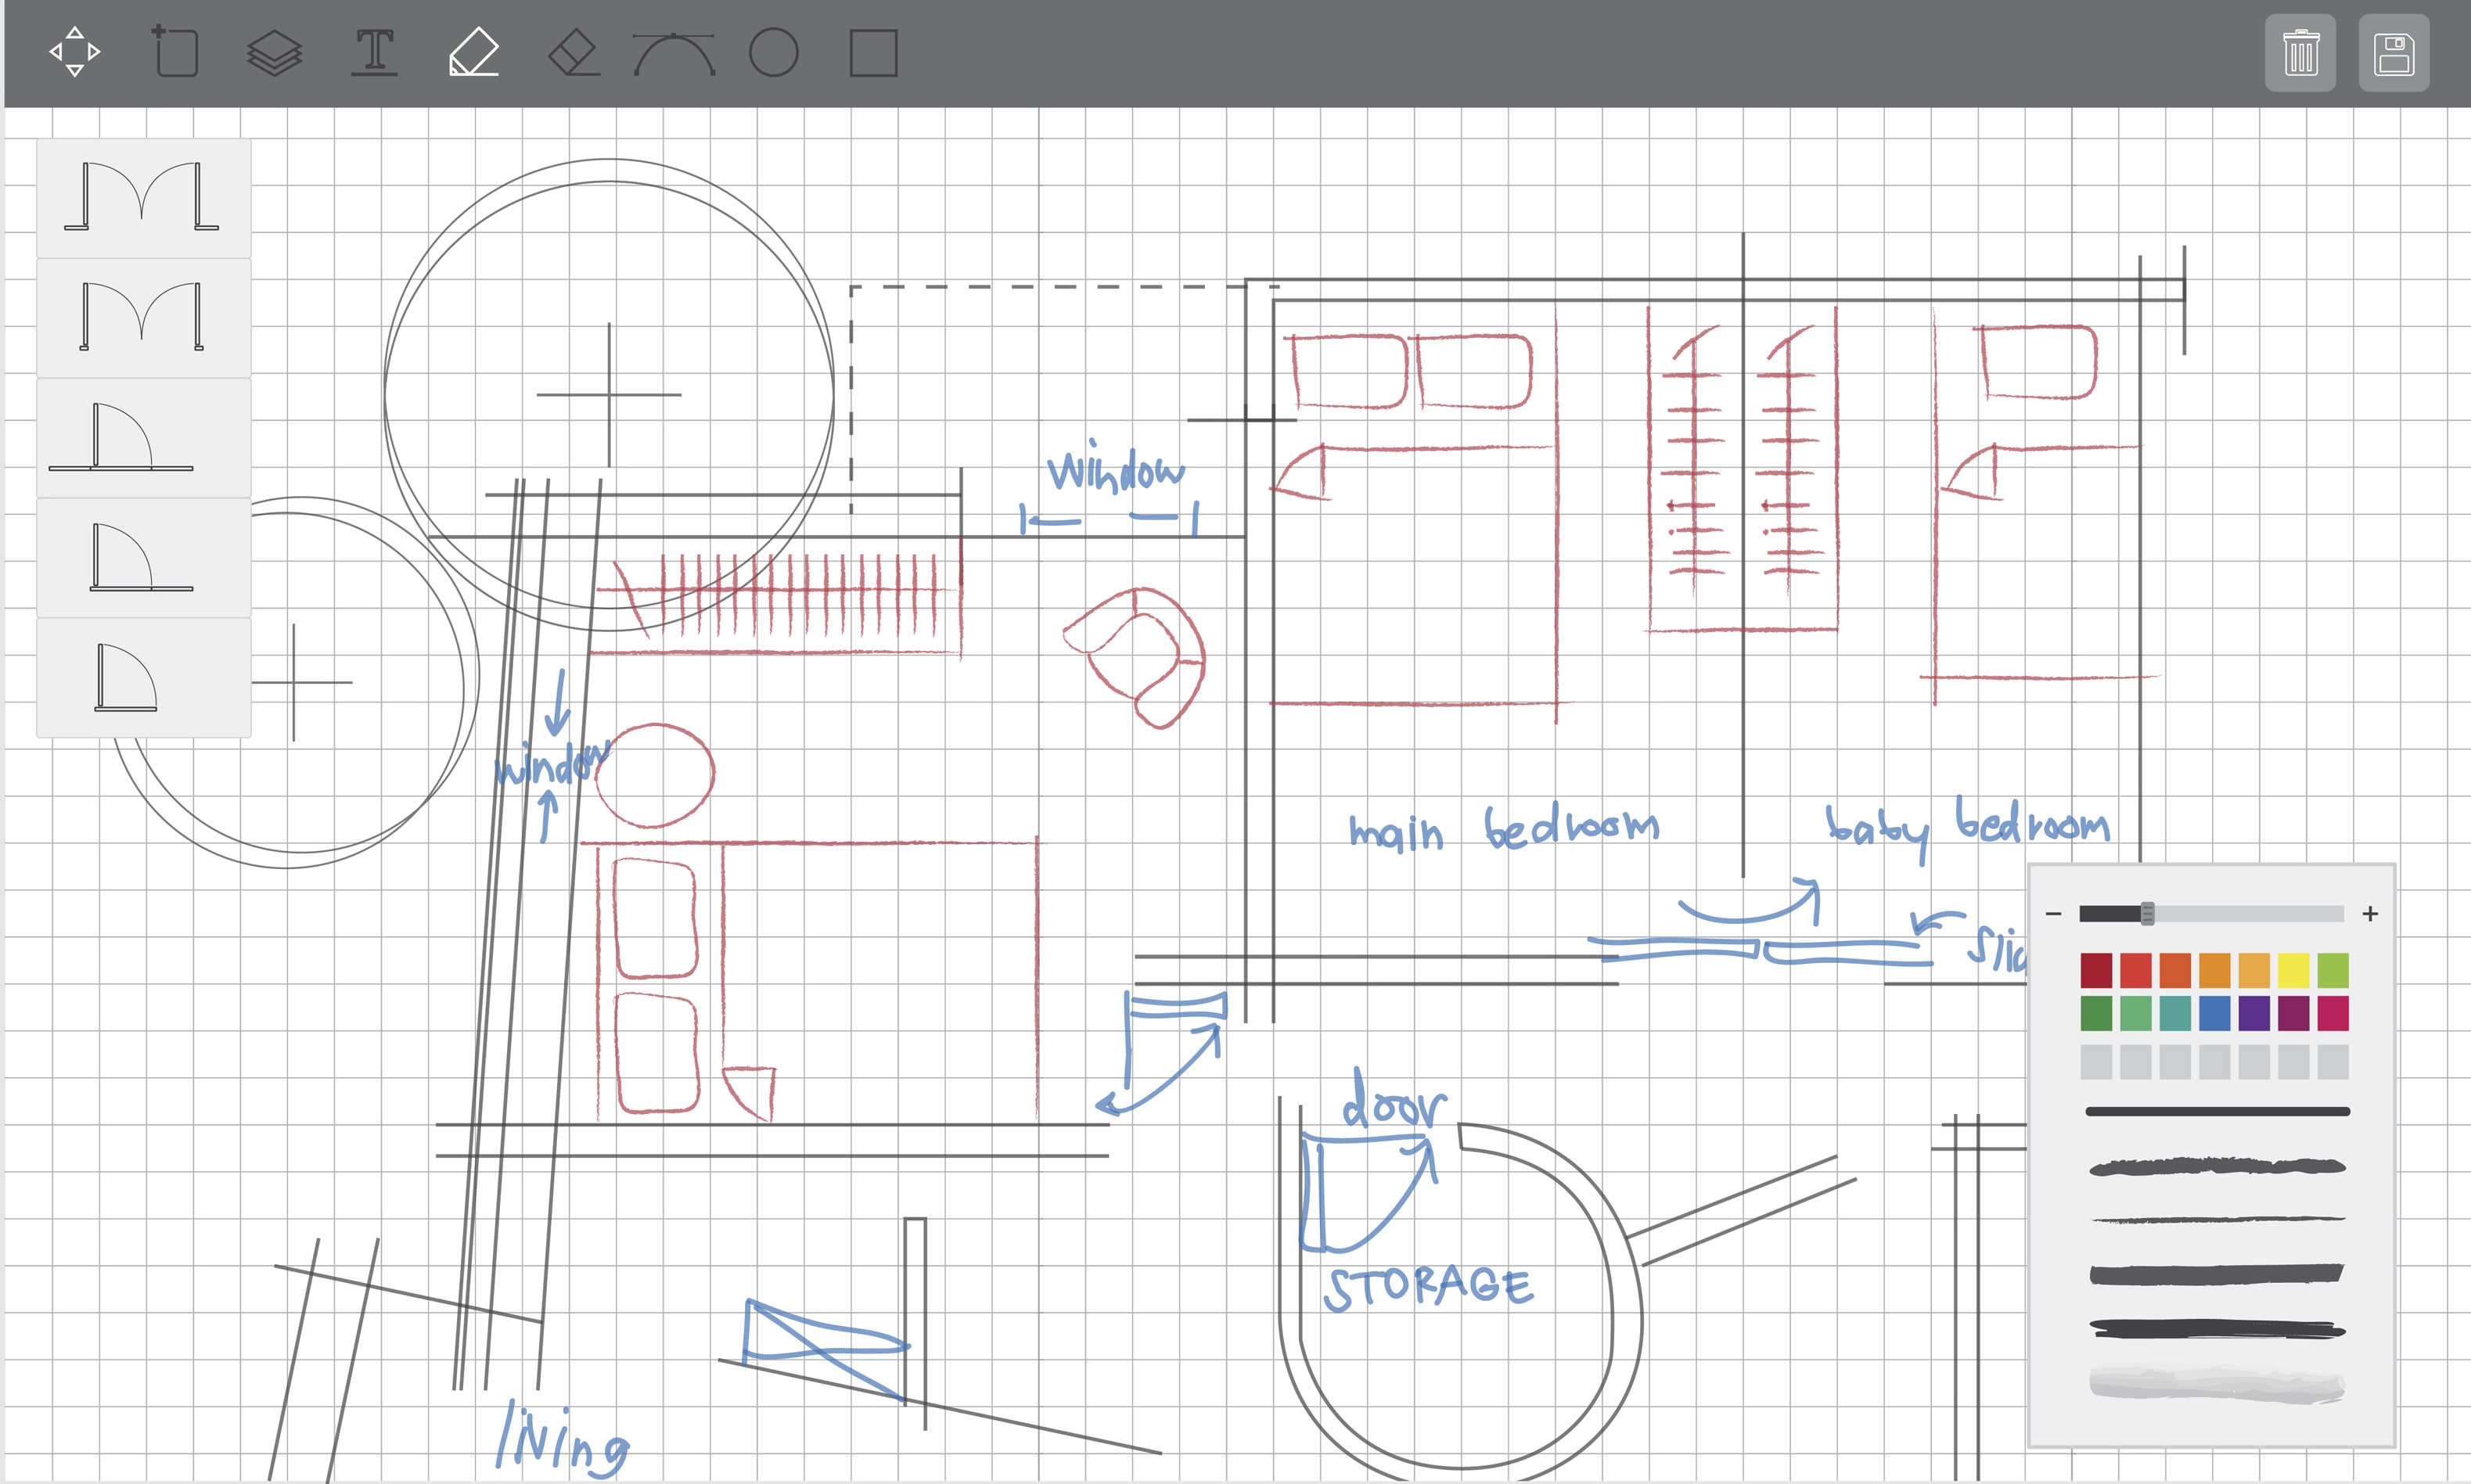 window
window
main bedroom
baby bedroom
door
STORAGE
living